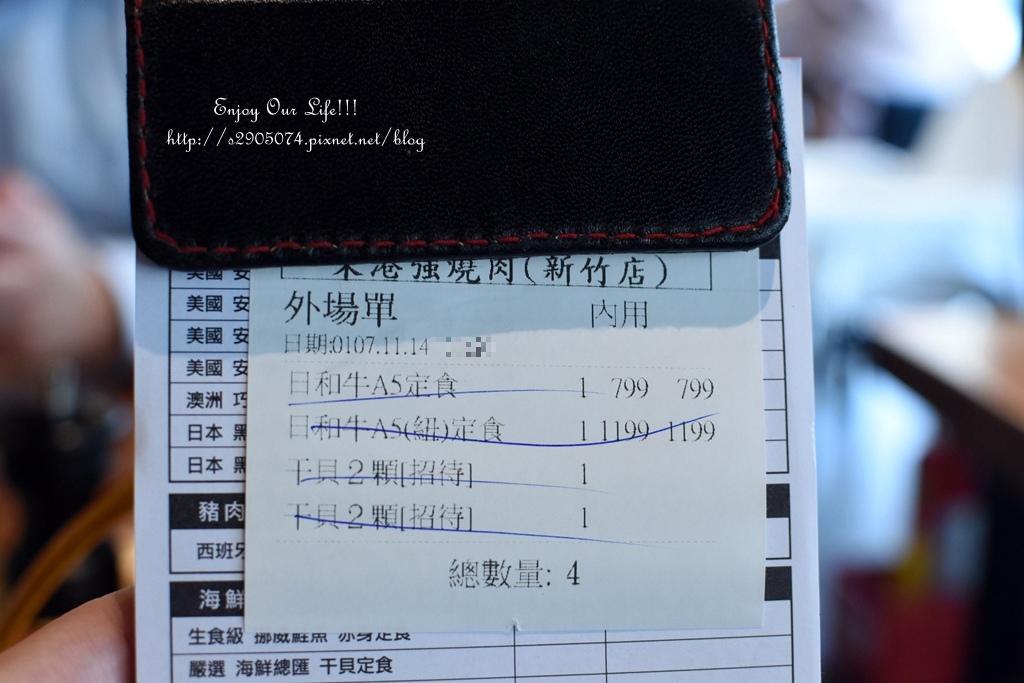 Enjoy Our Life!!!
http://s2905074.pixnet.net/blog
港強燒肉(新竹店)
外場單 內用
日期:0107.11.14
日和牛A5定食 1 799 799
日和牛A5(紐)定食 1 1199 1199
干貝２顆[招待] 1
干貝２顆[招待] 1
總數量: 4
美國 安
美國 安
美國 安
美國 安
澳洲 巧
日本 黑
日本 黑
豬肉
西班牙
海鮮
生食級 挪威鮭魚 赤身定食
嚴選 海鮮總匯 干貝定食